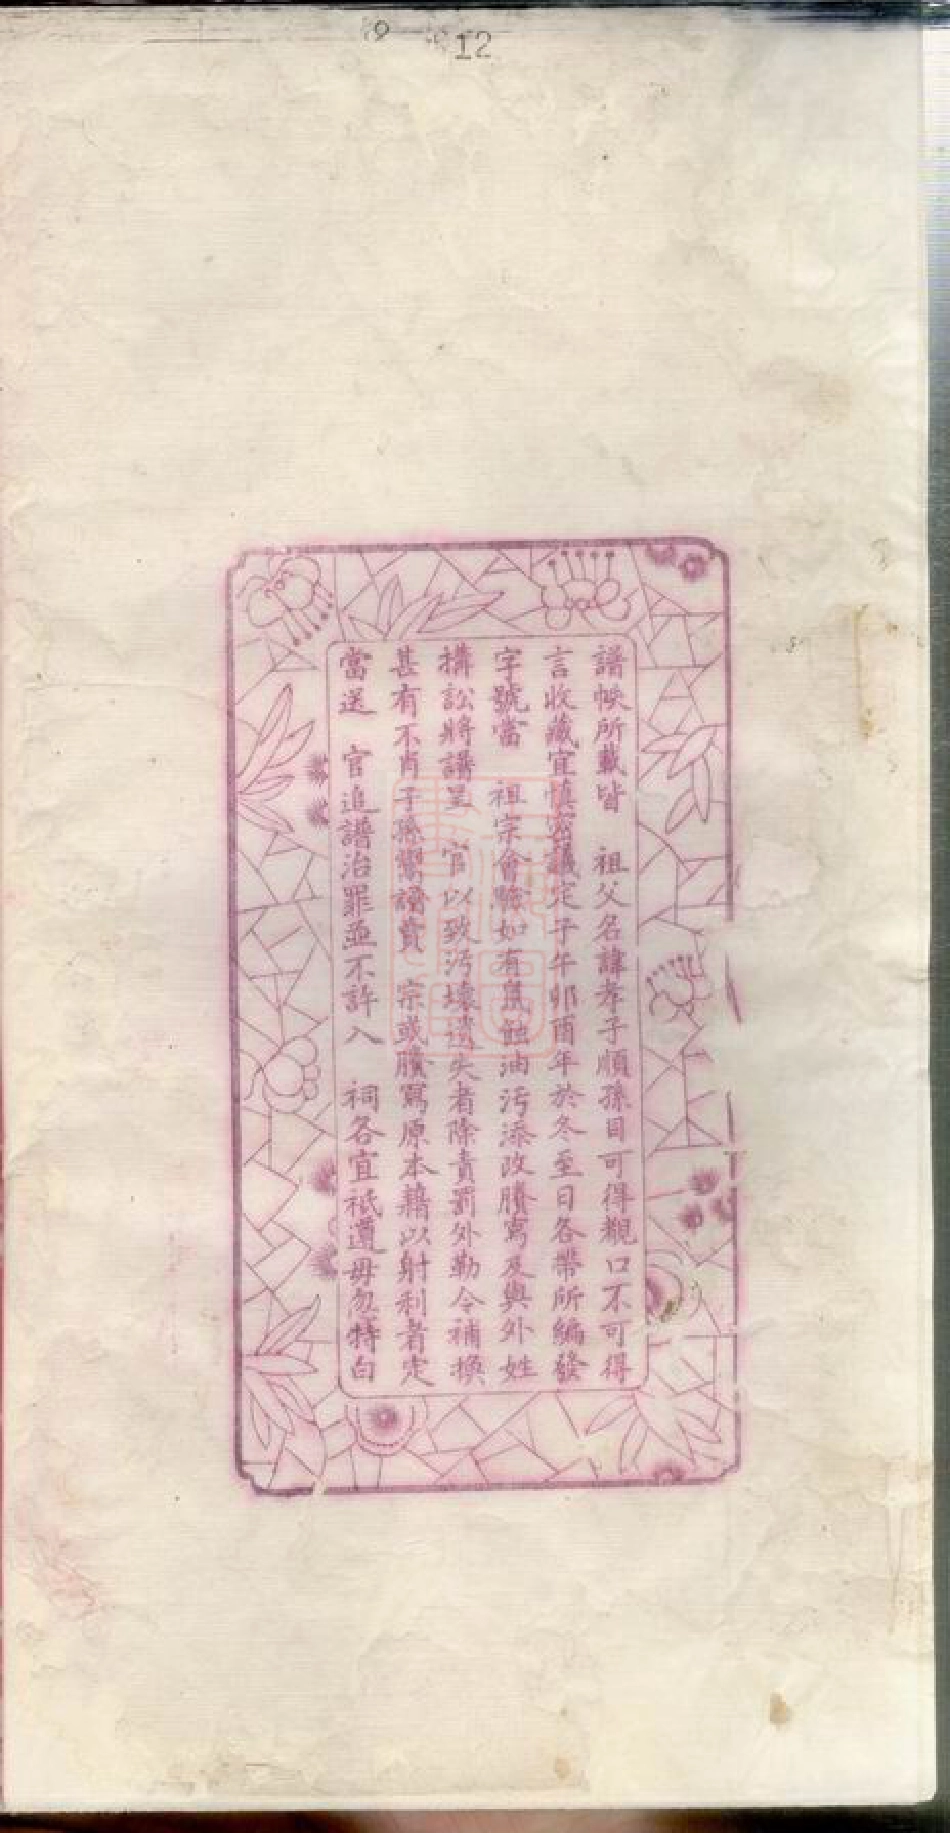 12
譜帙所載皆　祖父名諱孝子順孫目可得觀口不可得
言收藏宜慎密議定子午卯酉年於冬至日各帶所編發
字號當　祖宗會驗如有鼠蝕油污添改謄寫及與外姓
搆訟將譜呈　官以致污壞遺失者除責罰外勒令補換
甚有不肖子孫鬻譜賣　宗或謄寫原本藉以射利者定
當送　官追譜治罪並不許入　祠各宜祗遵毋忽特白